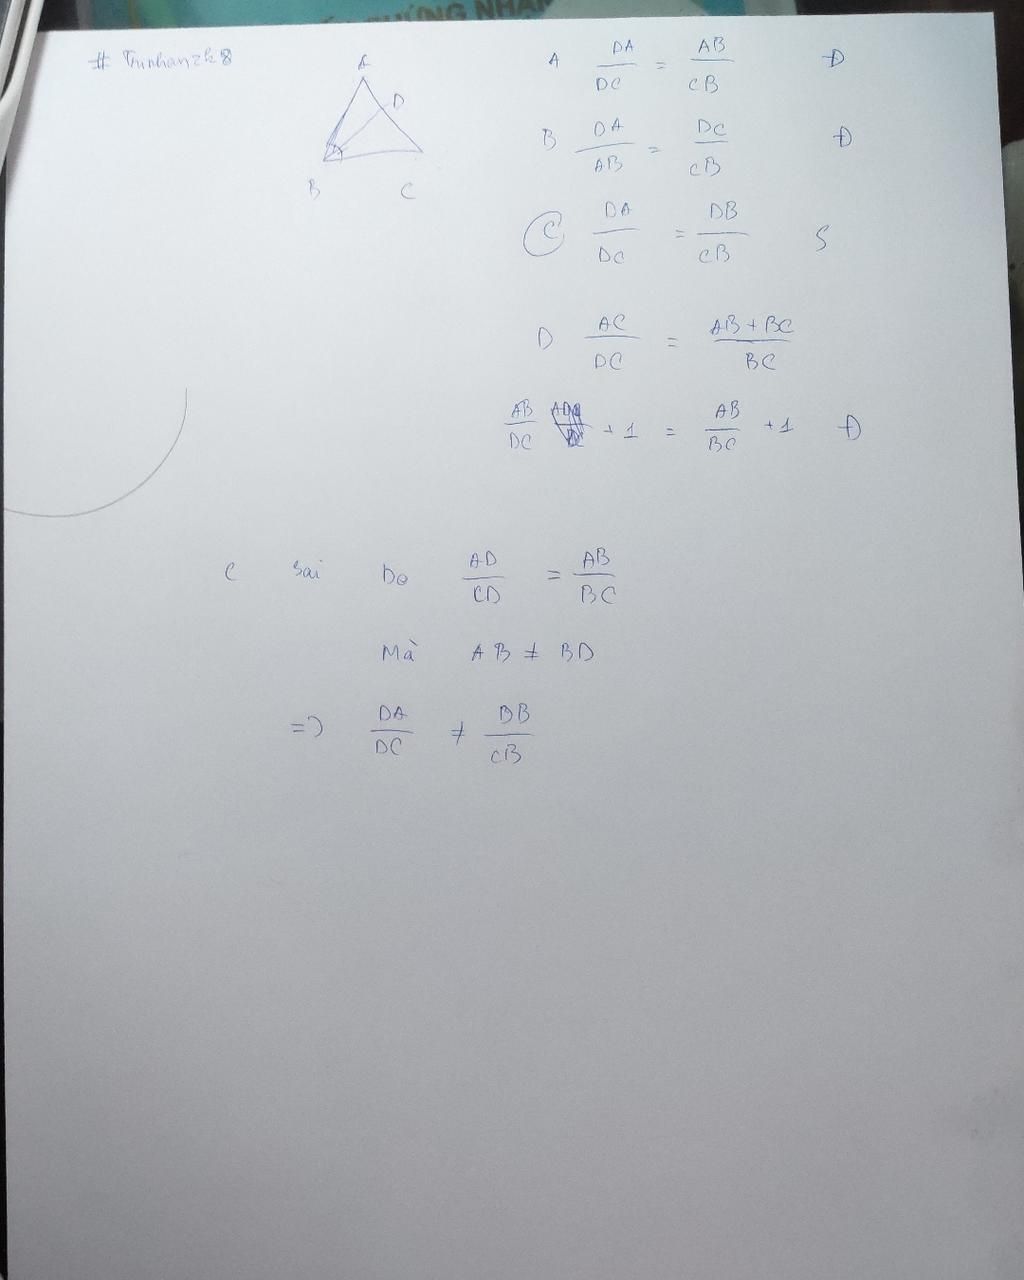 ỨNG NHẬN
# Trinhan2k8
A
D
B
C
A DA/DC = AB/CB Đ
B DA/AB = DC/CB Đ
C DA/DC = DB/CB S
D AC/DC = AB + BC/BC
AB/DC + 1 = AB/BC + 1 Đ
C sai Do AD/CD = AB/BC
Mà AB ≠ BD
=> DA/DC ≠ BB/CB